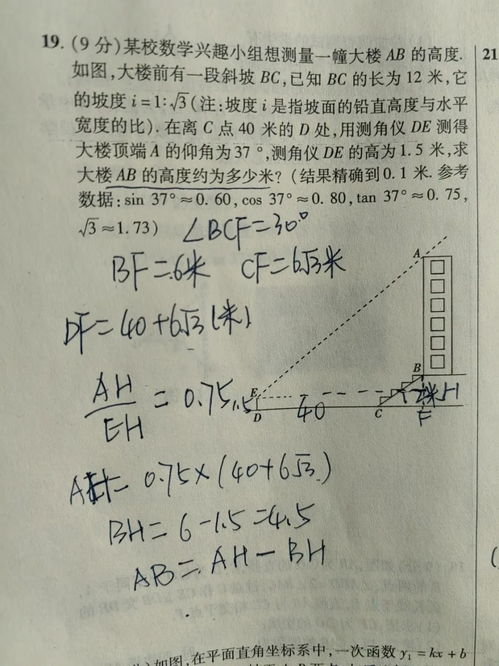 19. (9 分)某校数学兴趣小组想测量一幢大楼 AB 的高度.
如图,大楼前有一段斜坡 BC,已知 BC 的长为 12 米,它
的坡度 i=1:√3(注:坡度 i 是指坡面的铅直高度与水平
宽度的比).在离 C 点 40 米的 D 处,用测角仪 DE 测得
大楼顶端 A 的仰角为 37 °,测角仪 DE 的高为 1.5 米,求
大楼 AB 的高度约为多少米? (结果精确到 0.1 米.参考
数据:sin 37°≈0.60,cos 37°≈0.80,tan 37°≈0.75,
√3≈1.73)
21
∠BCF=30°
BF=6米 CF=6√3米
DF=40+6√3(米)
AH/EH=0.75
AH=0.75×(40+6√3)
BH=6-1.5=4.5
AB=AH-BH
A
B
E
1.5
D
40
C
12米
H
F
(
如图,在平面直角坐标系中,一次函数 y₁=kx+b